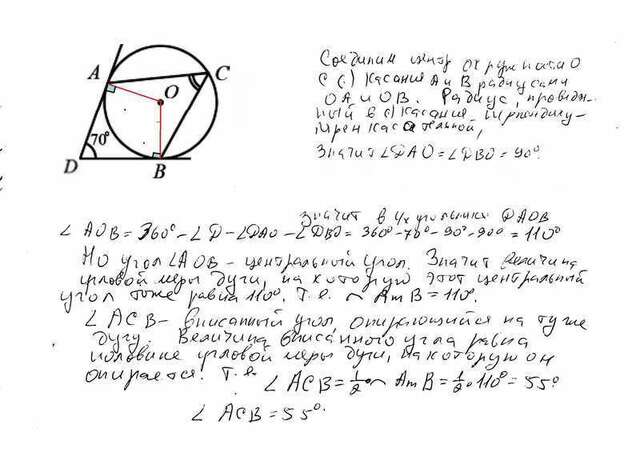 A
C
O
70°
D
B
Соединим центр окружности О
с (·) касания A и B радиусами
OA и OB. Радиус, проведён-
ный в (·) касания - перпендику-
лярен касательной,
Значит ∠DAO = ∠DBO = 90°.
Значит в 4х угольнике DAOB
∠ AOB = 360° - ∠D - ∠DAO - ∠DBO = 360° - 70° - 90° - 90° = 110°
Но угол ∠AOB - центральный угол. Значит величина
угловой меры дуги, на которую этот центральный
угол тоже равна 110°. Т.е. ◡ AmB = 110°.
∠ ACB - вписанный угол, опирающийся на ту же
дугу. Величина вписанного угла равна
половине угловой меры дуги, на которую он
опирается. Т.е. ∠ ACB = 1/2 ◡ AmB = 1/2 · 110° = 55°
∠ ACB = 55°.